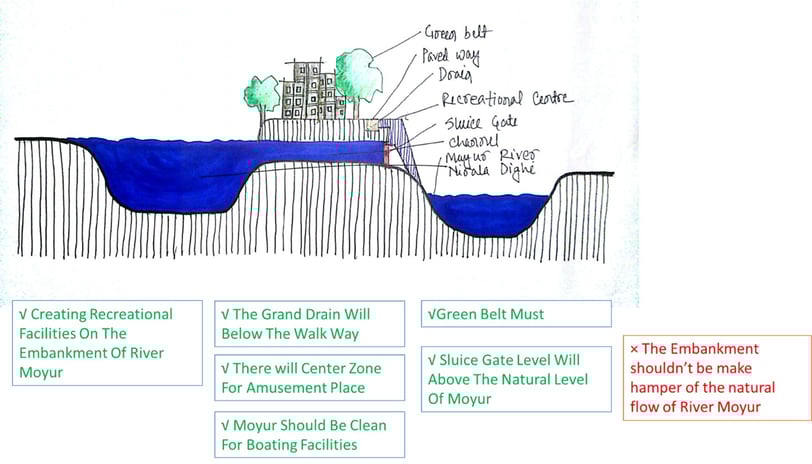 Green belt
Paved way
Drain
Recreational Centre
Sluice Gate
channel
Mayur River
Nirala Dighi
√ Creating Recreational
Facilities On The
Embankment Of River
Moyur
√ The Grand Drain Will
Below The Walk Way
√ There will Center Zone
For Amusement Place
√ Moyur Should Be Clean
For Boating Facilities
√Green Belt Must
√ Sluice Gate Level Will
Above The Natural Level
Of Moyur
× The Embankment
shouldn't be make
hamper of the natural
flow of River Moyur